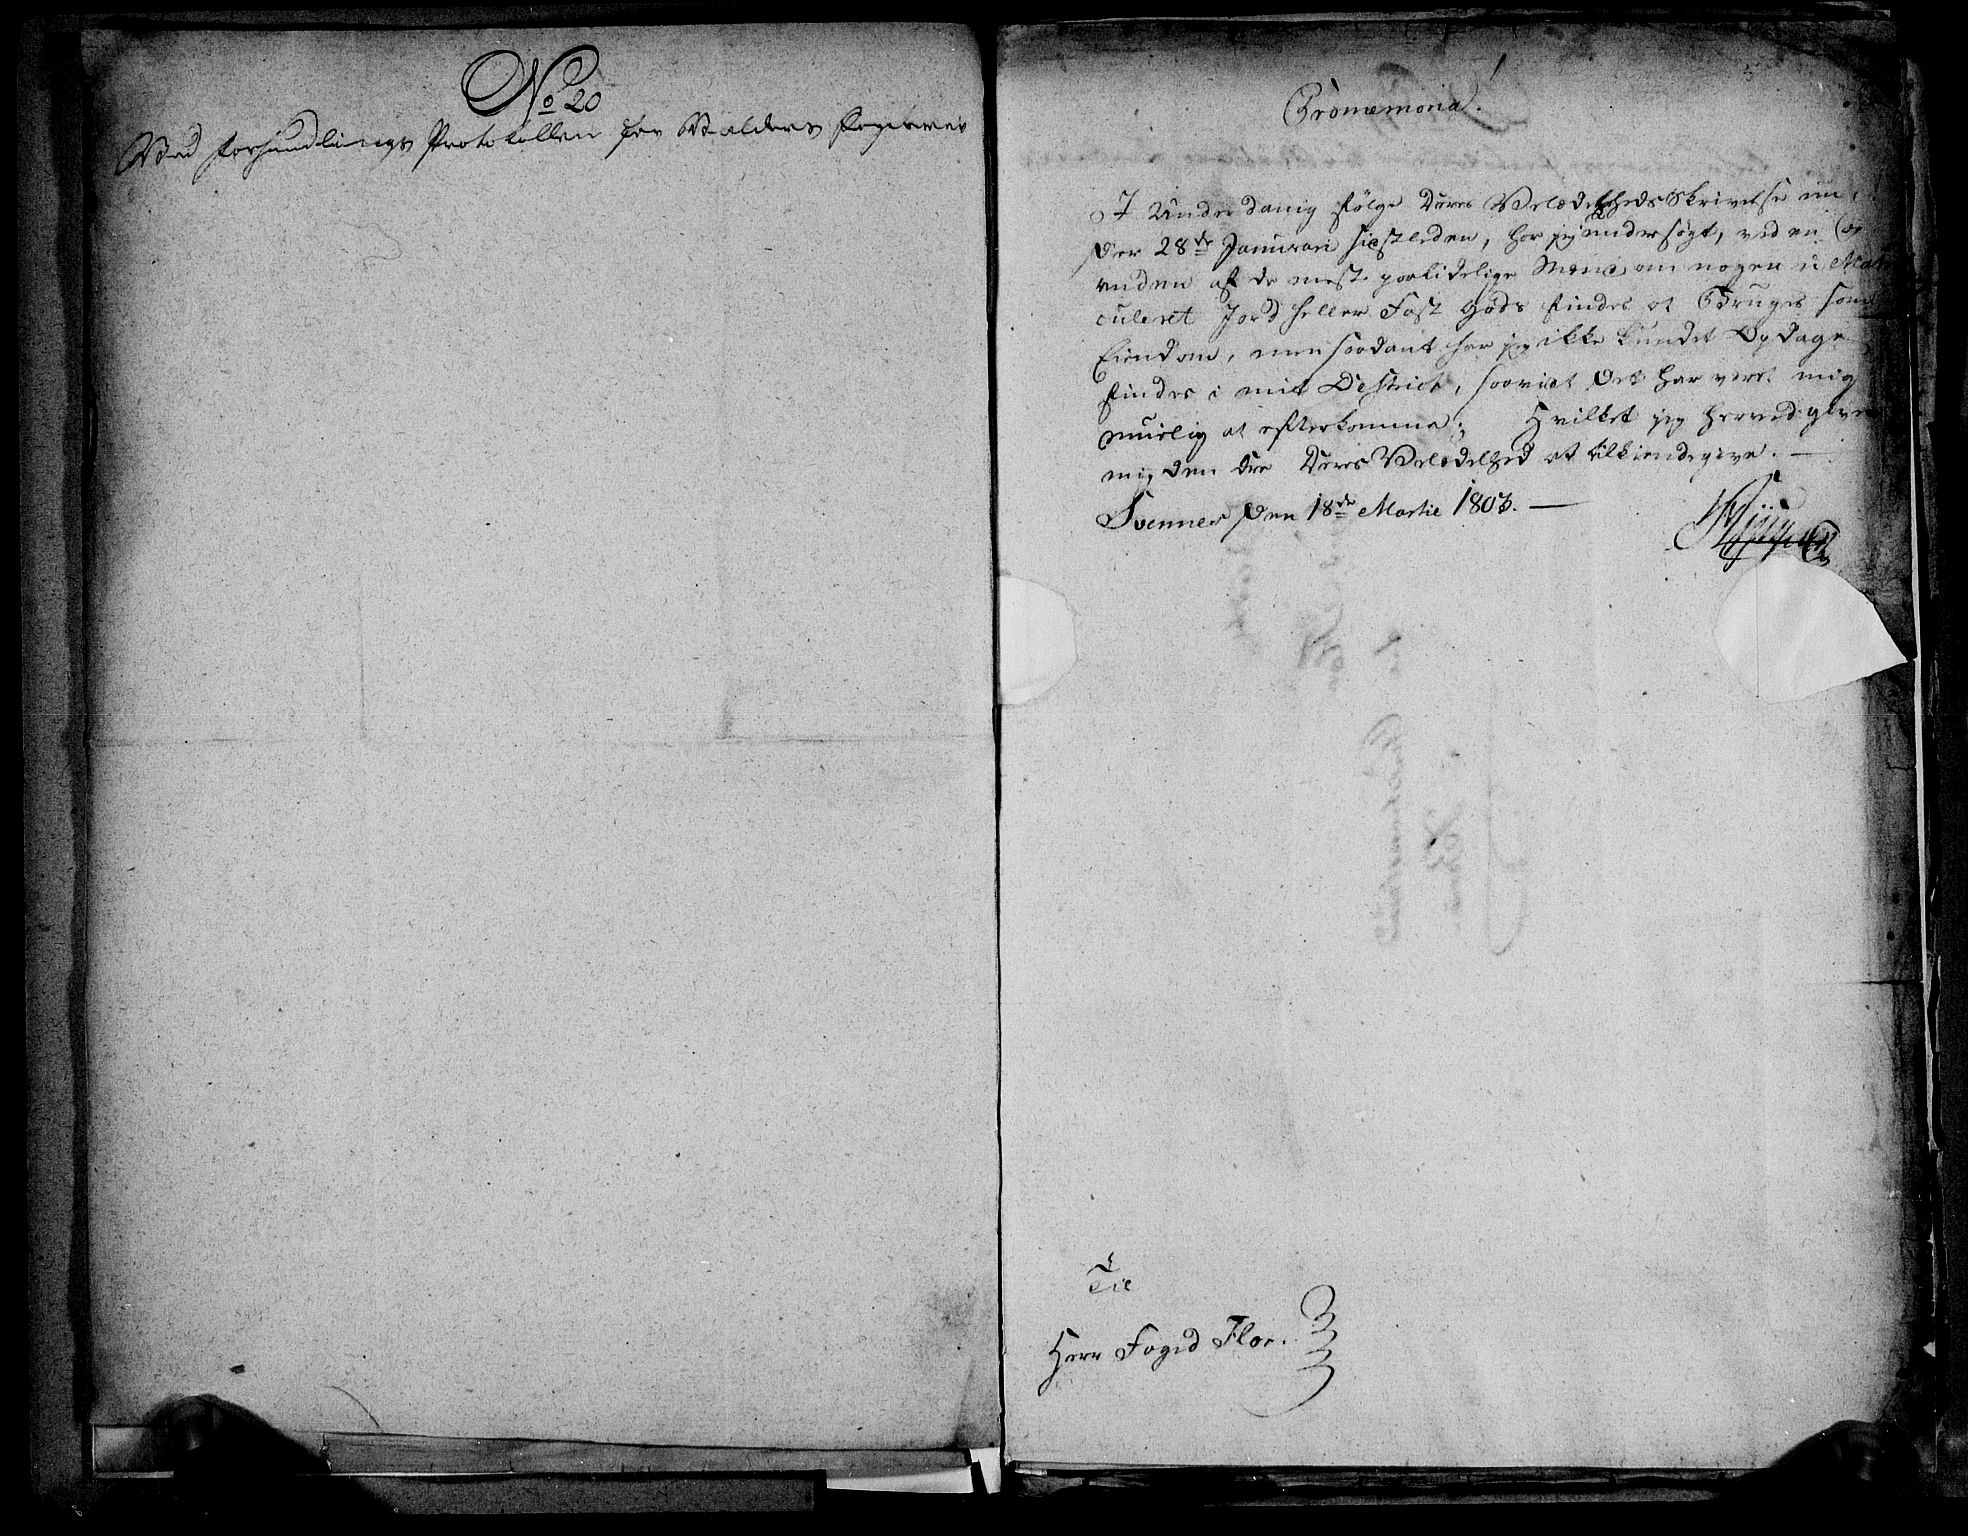 No 20
Ved Forhandlings Protokollen for Valders Fogderie
Promemoria.
I Underdanig følge Deres Velædelheds Skrivelse un,
der 28de Januari sidstleden, har jeg undersøgt, ved en
enden af de mest paalidelige Mænd, om nogen u Mat
culeret Jord heller Fast Gods findes at Bruges som
Eiendom, men saadant har jeg ikke kundet Opdage
findes i mit Destrict, saavit det har veret mig
muelig at efterkomme; Hvilket jeg herved give
mig den ære Deres Velædelhed at tilkiendegive. —
Svennes den 18de Martie 1803. —
Til
Herr Foged Flor.